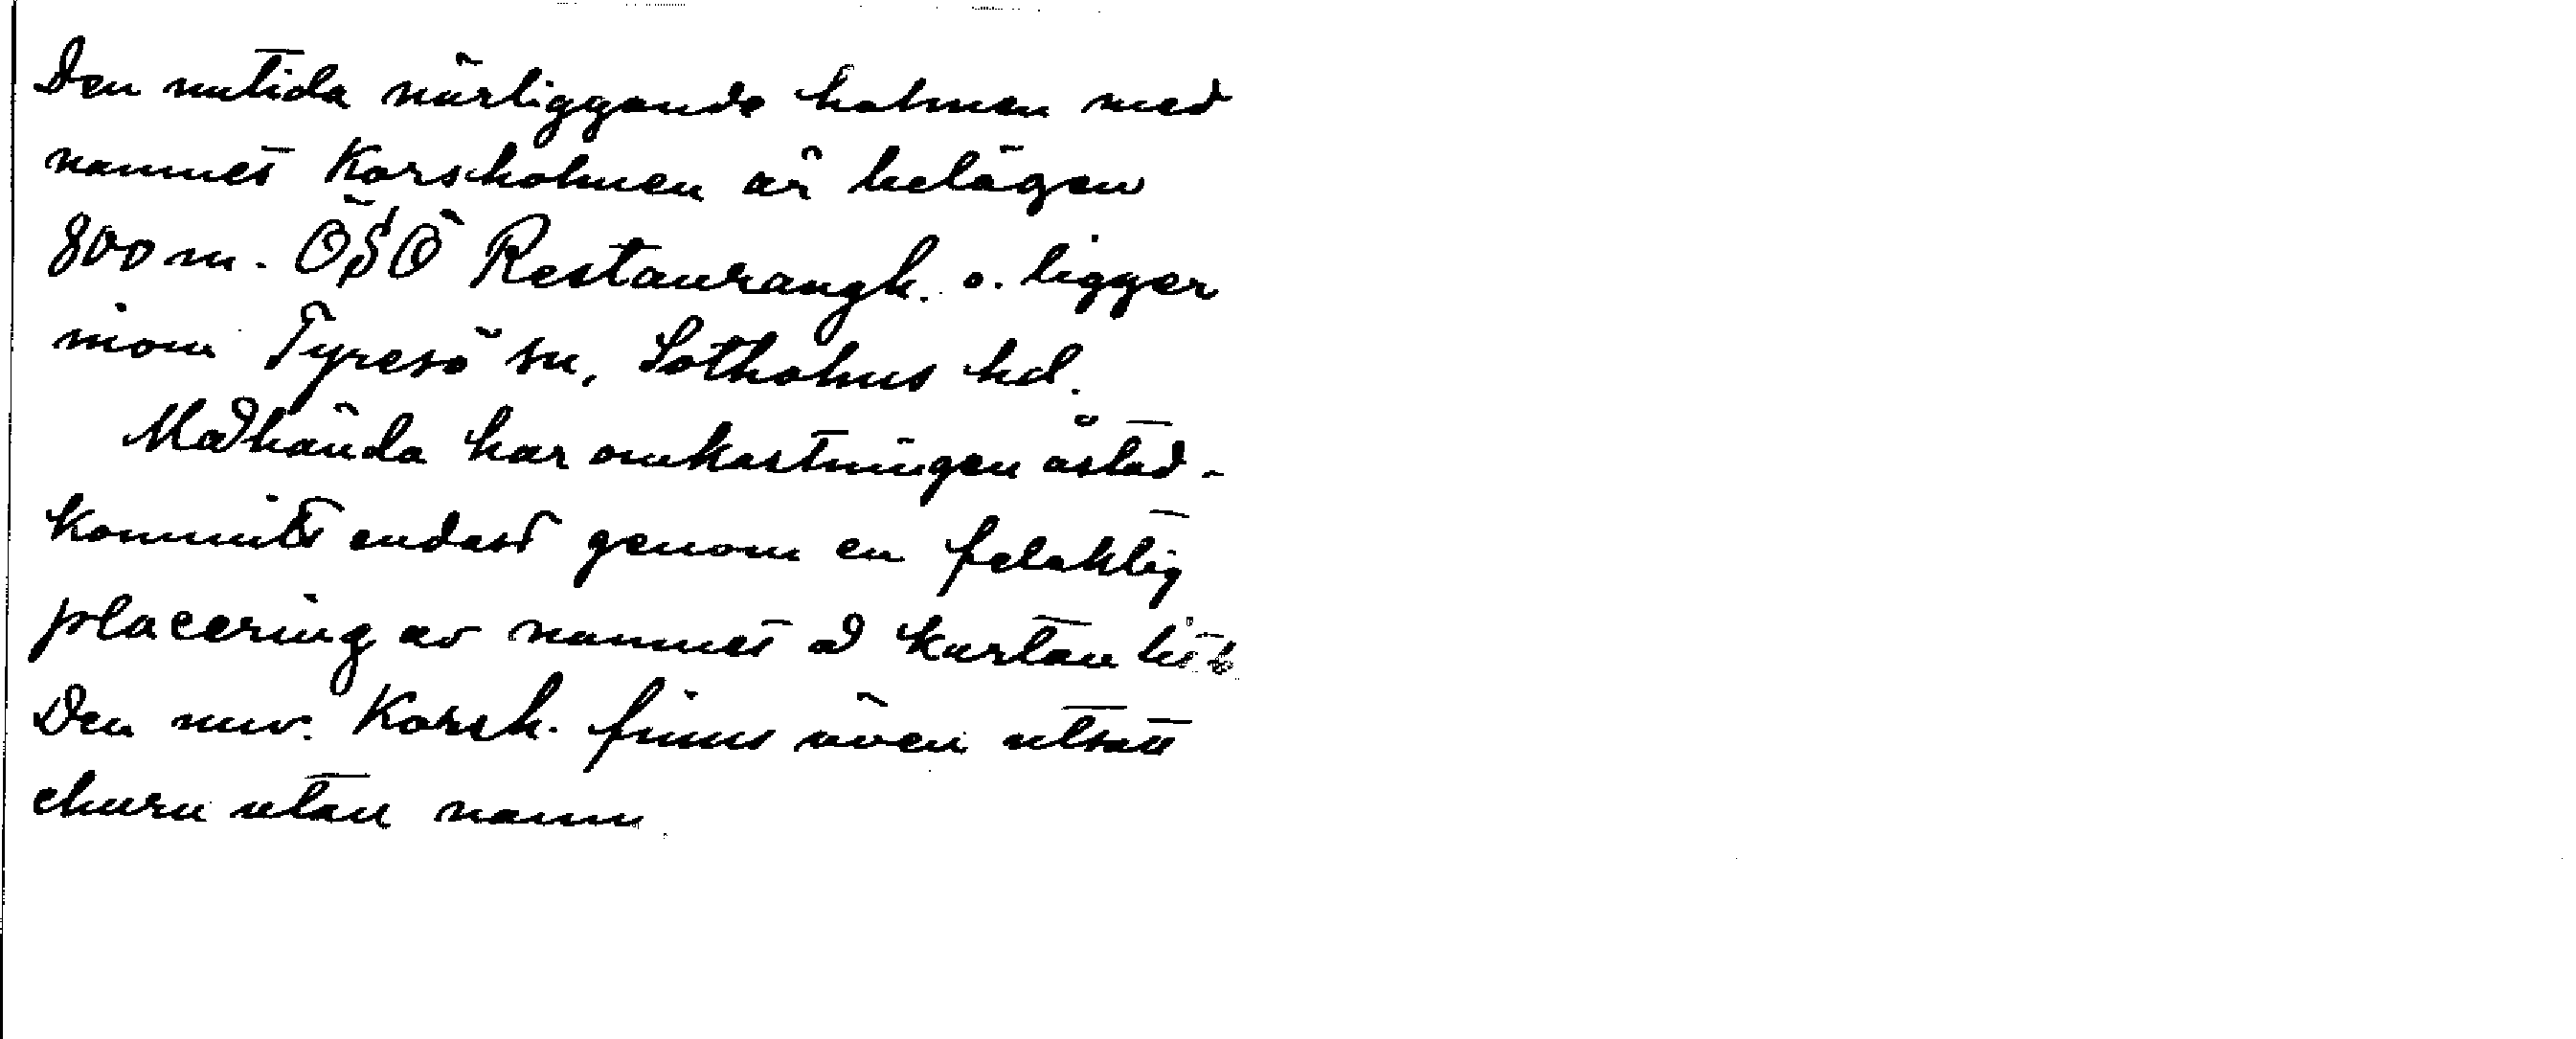 Den nutida närliggande holmen med
namnet Korsholmen är belägen
800 m. ÖSÖ Restaurangh. o. ligger
inom Tyresö sn, Sotholms hd.
Måhända har omkastningen åstad-
kommits endast genom en felaktig
placering av namnet å kartan
Den nuv. Korsh. finns även utsatt
ehuru utan namn